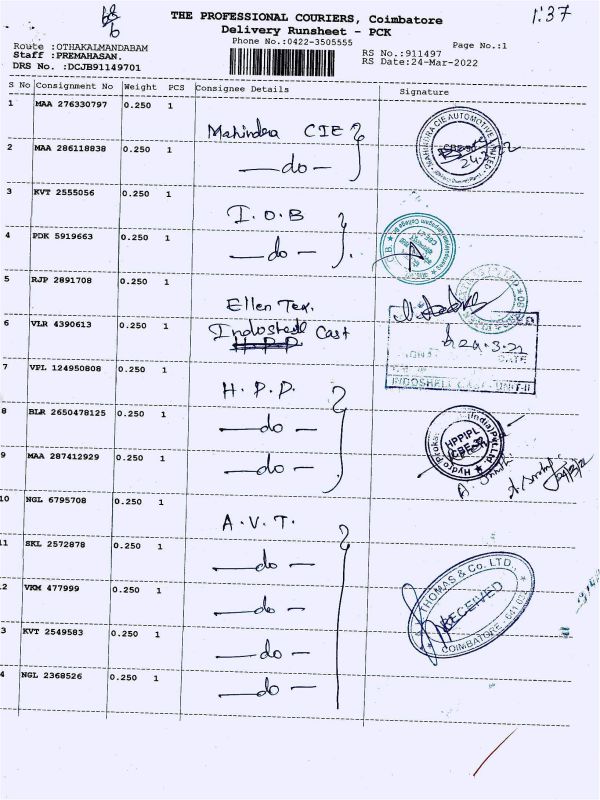 1:37
THE PROFESSIONAL COURIERS, Coimbatore
Delivery Runsheet - PCK
Phone No.:0422-3505555
Page No.:1
Route :OTHAKALMANDABAM
RS No.:911497
Staff :PREMAHASAN.
RS Date:24-Mar-2022
DRS No. :DCJB91149701
S No Consignment No Weight PCS Consignee Details Signature
1 MAA 276330797 0.250 1 Mahindra CIE
MAHINDRA CIE AUTOMOTIVE LIMITED
2 MAA 286118838 0.250 1 —do—
3 KVT 2555056 0.250 1 I.O.B
4 PDK 5919663 0.250 1 —do—
5 RJP 2891708 0.250 1 Ellen Tex.
6 VLR 4390613 0.250 1 Indoshell Cast
H.P.P
24.3.22
DATE
INDOSHELL CAST UNIT-II
7 VPL 124950808 0.250 1 H.P.P.
8 BLR 2650478125 0.250 1 —do—
HPPIPL
CBE-32
Hydro (India) Pvt. Ltd.
9 MAA 287412929 0.250 1 —do—
10 NGL 6795708 0.250 1 A.V.T.
11 SKL 2572878 0.250 1 —do—
THOMAS & Co. LTD.
RECEIVED
COIMBATORE
2 VKM 477999 0.250 1 —do—
3 KVT 2549583 0.250 1 —do—
4 NGL 2368526 0.250 1 —do—